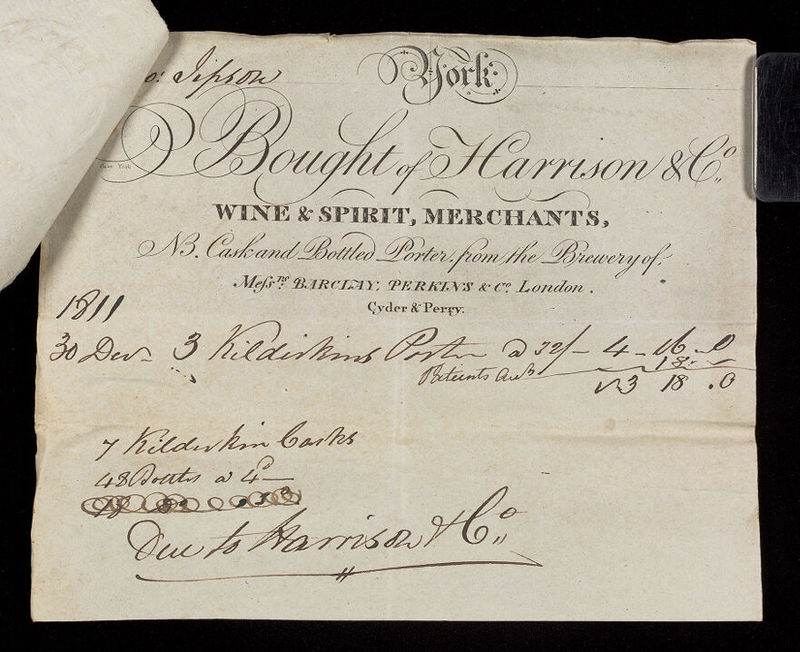 o: Jipson
York
Bought of Harrison & Co.,
WINE & SPIRIT, MERCHANTS,
NB. Cask and Bottled Porter, from the Brewery of,
Messrs. BARCLAY, PERKINS & Co. London.
Cyder & Perry.
1811
30 Decr 3 Kilderkins Porter a 32/- 4 - 16 - 0
18 -
3 18 . 0
7 Kilderkin Casks
48 Bottles a 4d —
Due to Harrison & Co.,